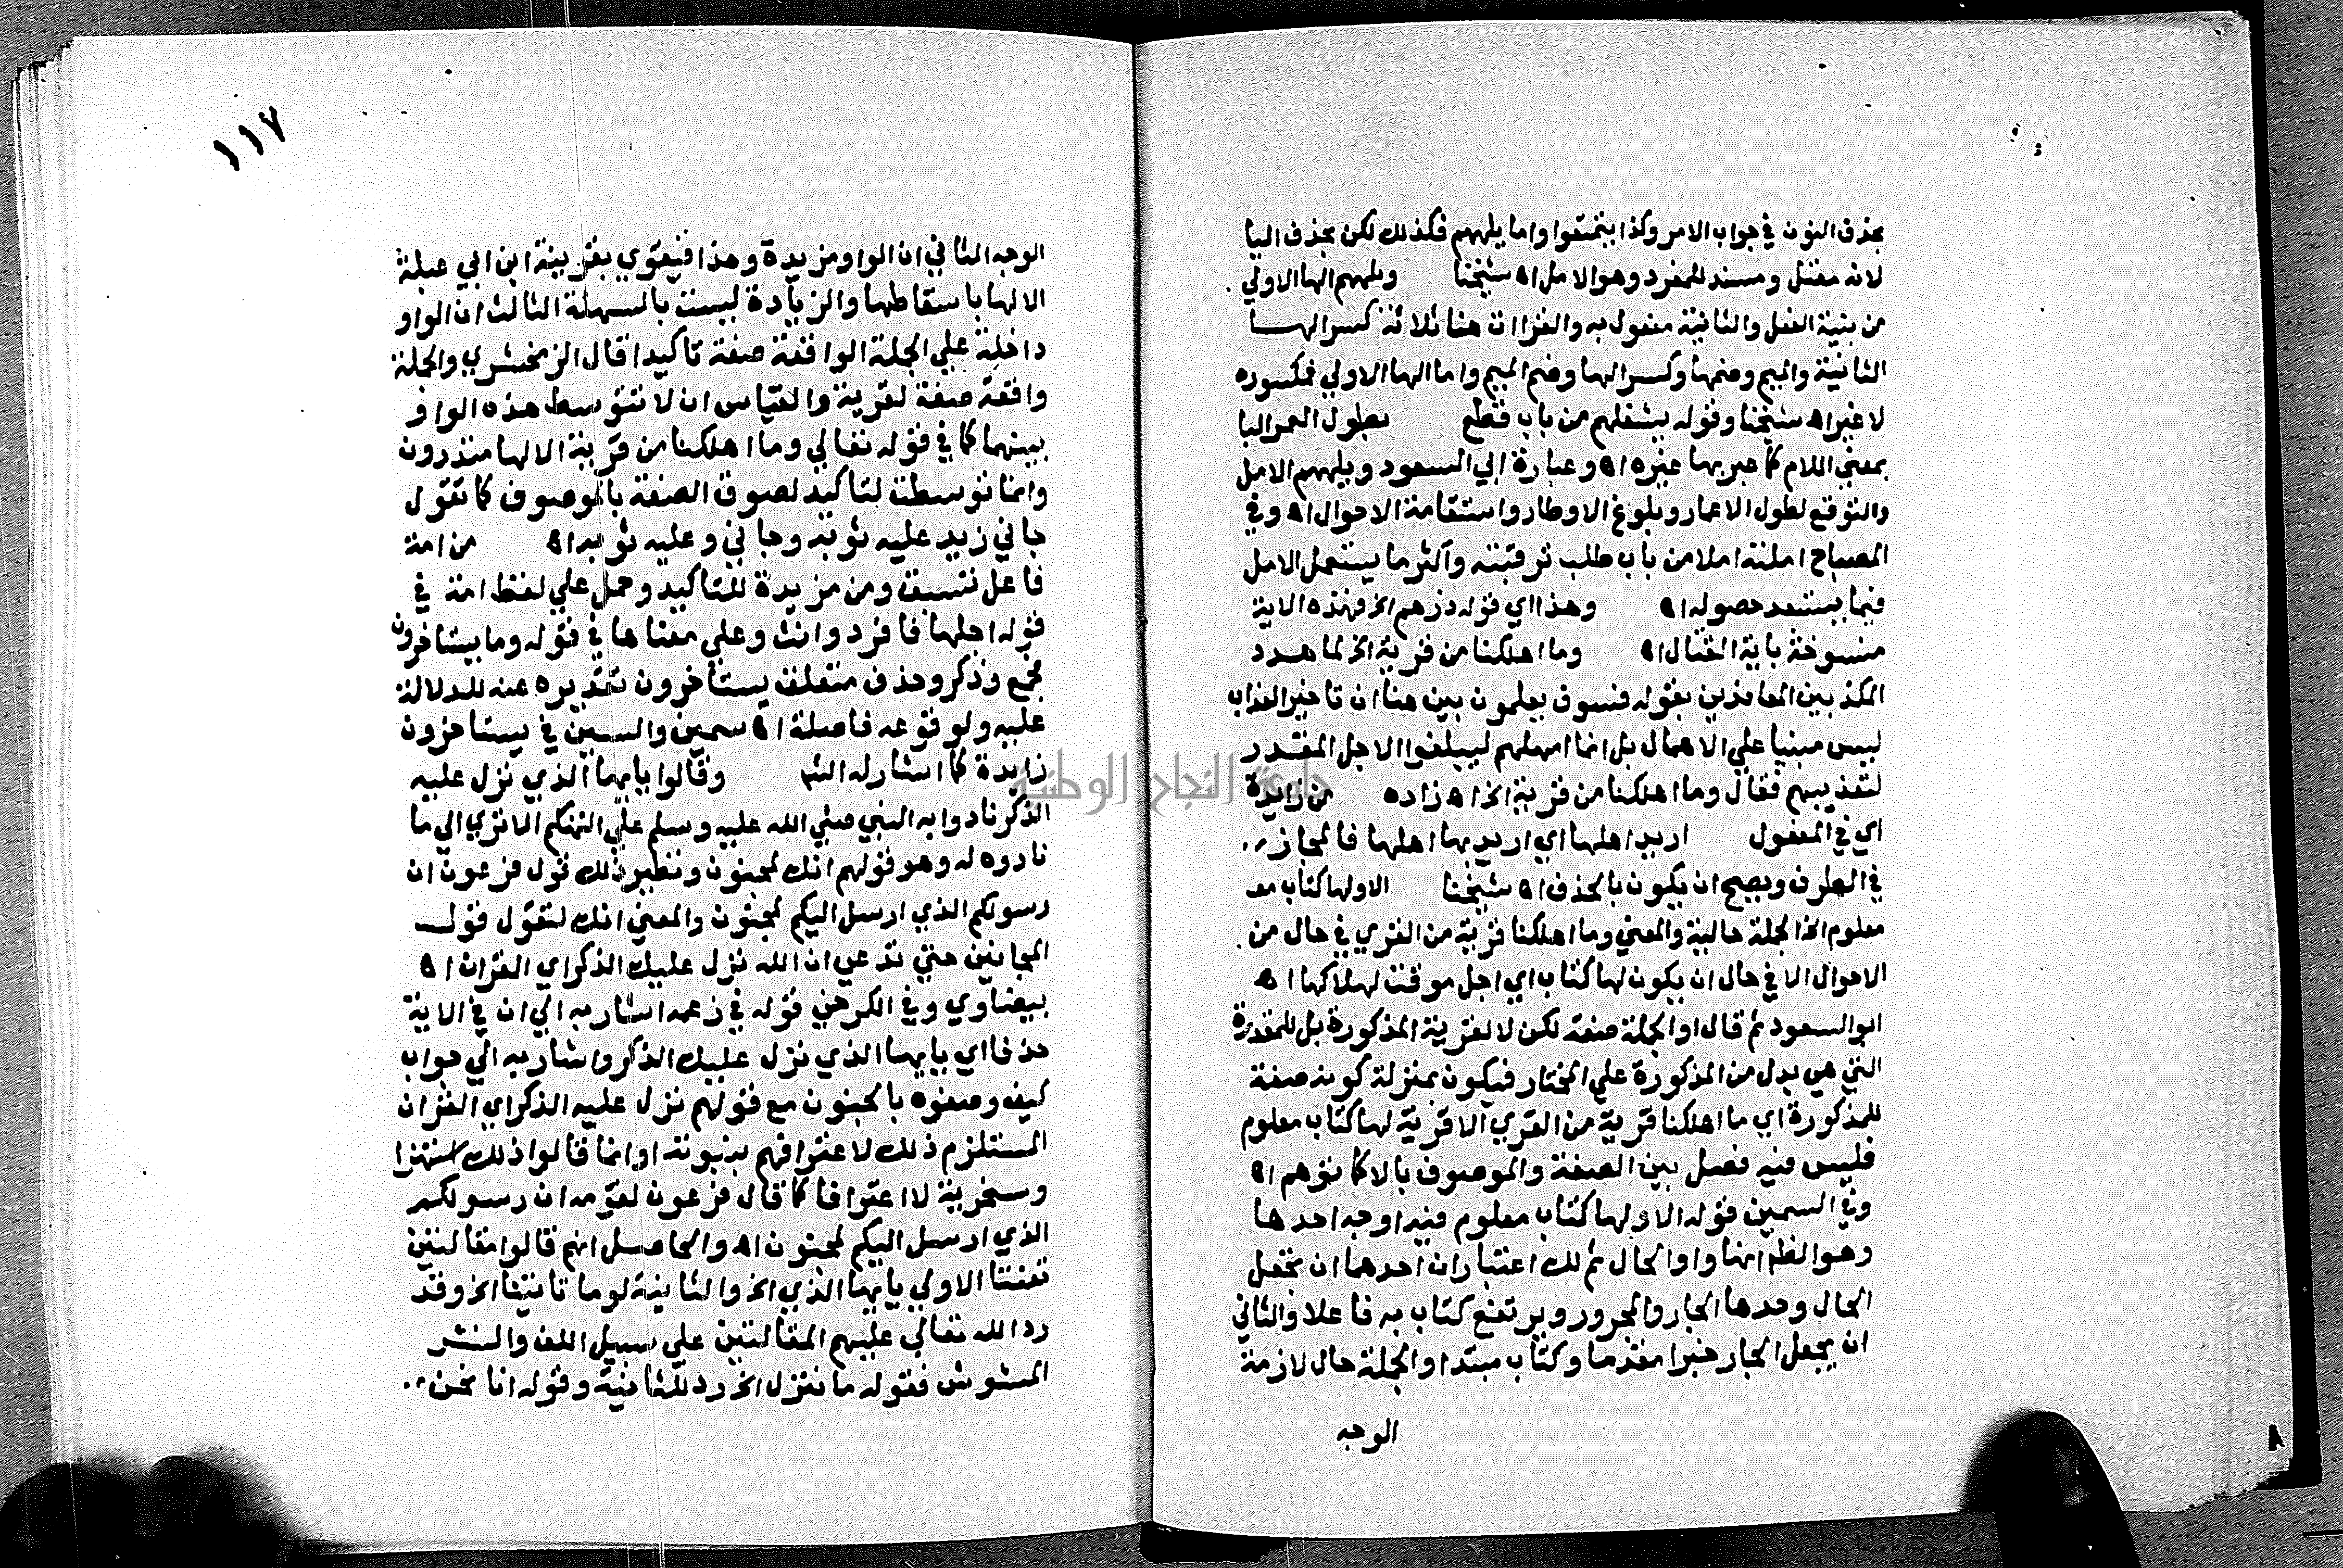 بحذف النون في جواب الامر وكذا يتمتعوا واما يلههم فكذلك لكن بحذف اليا
لانه معتل ومسند للمفرد وهو الامل اه شيخنا ويلههم الها الاولي
من بنية الفعل والثانية مفعول به والقراات هنا ثلاثة كسر الهـا
الثانية والميم وضمها وكسر الها وضم الميم واما الها الاولي فمكسوره
لا غير اه شيخنا وقوله يشغلهم من باب قطع بطول العمر البا
بمعني اللام كما عبر بها غيره اه وعبارة ابي السعود ويلههم الامل
والتوقع لطول الاعمار وبلوغ الاوطار واستقامة الاحوال اه وفي
المصباح املته املا من باب طلب ترقبته واكثر ما يستعمل الامل
فيما يستبعد حصوله اه وهذا اي قوله ذرهم الخ فهذه الاية
منسوخة باية القتال اه وما اهلكنا من قرية الخ لما هدد
المكذبين المعاندين بقوله فسوف يعلمون بين هنا ان تاخير العذاب
ليس مبنيا علي الاهمال بل انما امهلهم ليبلغوا الاجل المقدر
لتعذيبهم فقال وما اهلكنا من قرية الخ اه زاده من زايدة
اي في المفعول اريد اهلها اي اريد بها اهلها فالمجاز
في الطرف ويصح ان يكون بالحذف اه شيخنا الا ولها كتاب مع
معلوم الخ الجملة حالية والمعني وما اهلكنا قرية من القري في حال من
الاحوال الا في حال ان يكون لها كتاب اي اجل موقت لهلاكها اه
ابو السعود ثم قال او الجملة صفة لكن لا لقرية المذكورة بل للمقدرة
التي هي بدل من المذكورة علي المختار فيكون بمنزلة كونه صفة
للمذكورة اي ما اهلكنا قرية من القري الا قرية لها كتاب معلوم
فليس فيه فصل بين الصفة والموصوف بالا كما توهم اه
وفي السمين قوله الا ولها كتاب معلوم فيه اوجه احدها
وهو الظم انها واو الحال ثم لك اعتباران احدهما ان تجعل
الحال وحدها الجار والمجرور ويرتفع كتاب به فاعلا والثاني
ان يجعل الجار خبرا مقدما وكتاب مبتدا والجملة حال لازمة
الوجه
١١٧
الوجه الثاني ان الواو مزيدة وهذا فيقوي بقريبة ابن ابي عبلة
الا لها باسقاطها والزيادة ليست بالسهلة الثالث ان الواو
داخلة علي الجملة الواقعة صفة تاكيدا قال الزمخشري والجملة
واقعة صفة لقرية والقياس ان لا تتوسط هذه الواو
بينهما كما في قوله تعالي وما اهلكنا من قرية الا لها منذرون
وانما توسطت لتاكيد لصوق الصفة بالموصوف كما تقول
جاني زيد عليه ثوبه وجاني وعليه ثوبه اه من امة
فاعل تسبق ومن مزيدة للتاكيد وحمل علي لفظ امة في
قوله اجلها فافرد وانث وعلي معناها في قوله وما يستاخرون
فجمع وذكر وحذف متعلق يستاخرون تقديره عنه للدلالة
عليه ولوقوعه فاصلة اه سمين والسين في يستاخرون
زايدة كما اشار له الشم وقالوا يايها الذي نزل عليه
الذكر نادوا به النبي صلي الله عليه وسلم علي التهكم الا تري الي ما
نادوه له وهو قولهم انك لمجنون ونظير ذلك قول فرعون ان
رسولكم الذي ارسل اليكم لمجنون والمعني انك لتقول قول
المجانين حتي تدعي ان الله نزل عليك الذكر اي القران اه
بيضاوي وفي الكرخي قوله في زعمه اشار به الي ان في الاية
حذفا اي يايها الذي نزل عليك الذكر واشار به الي جواب
كيف وصفوه بالجنون مع قولهم نزل عليه الذكر اي القران
المستلزم ذلك لاعترافهم بنبوته او انما قالوا ذلك استهزا
وسخرية لا اعترافا كما قال فرعون لقومه ان رسولكم
الذي ارسل اليكم لمجنون اه والحاصل انهم قالوا مقالتين
تعنتا الاولي يايها الذي الخ والثانية لو ما تاتينا الخ وقد
رد الله تعالي عليهم المقالتين علي سبيل اللف والنشر
المشوش فقوله ما ننزل الخ رد للثانية وقوله انا نحن
جامعة النجاح الوطنية